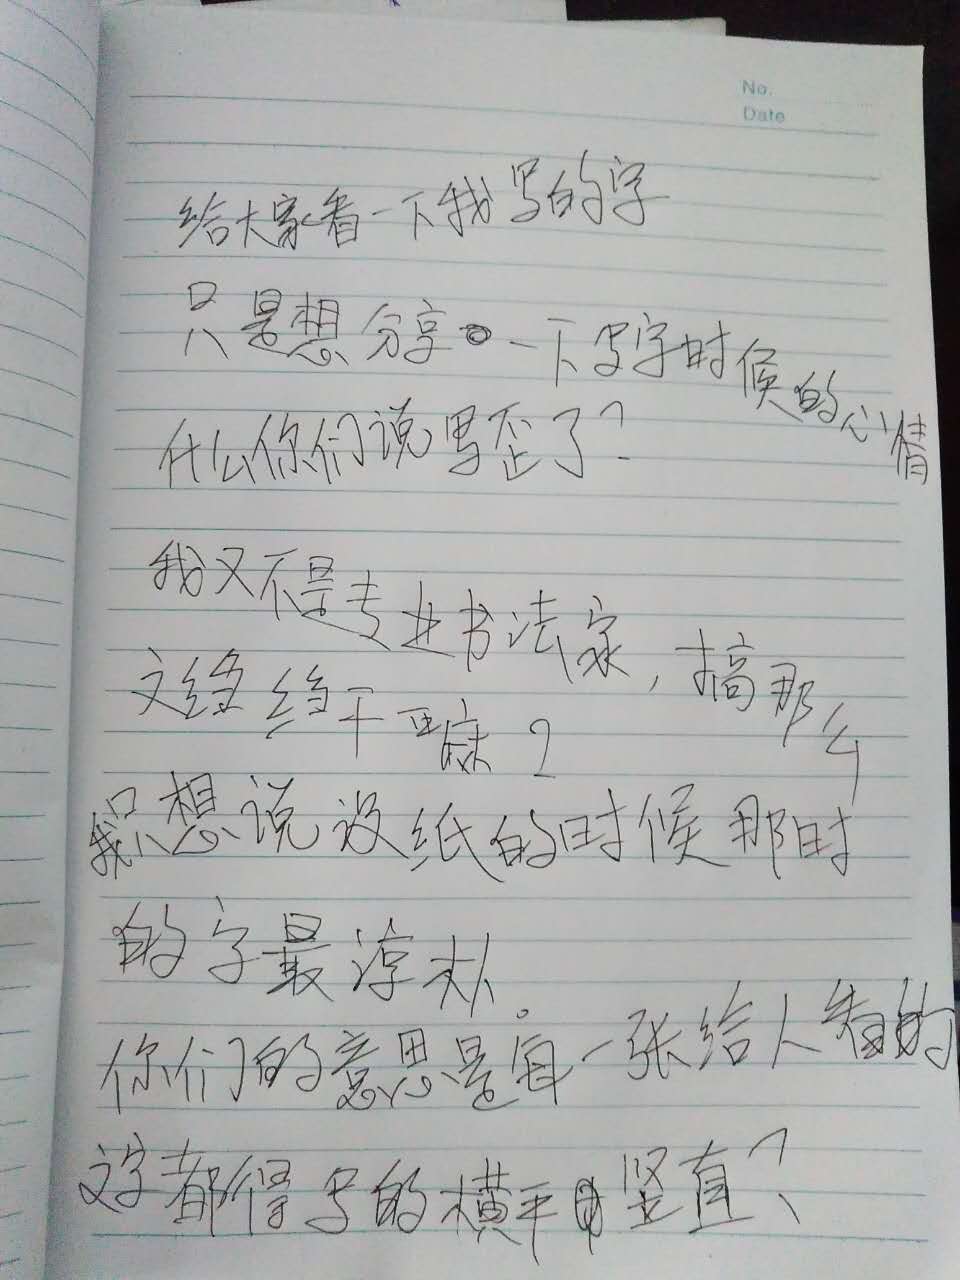 No.
Date
给大家看一下我写的字
只是想分享一下写字时候的心情
什么你们说写歪了？
我又不是专业书法家，搞那么
文绉绉干嘛？
我只想说没纸的时候那时
的字最淳朴。
你们的意思是每一张给人看的
字都得写的横平竖直？